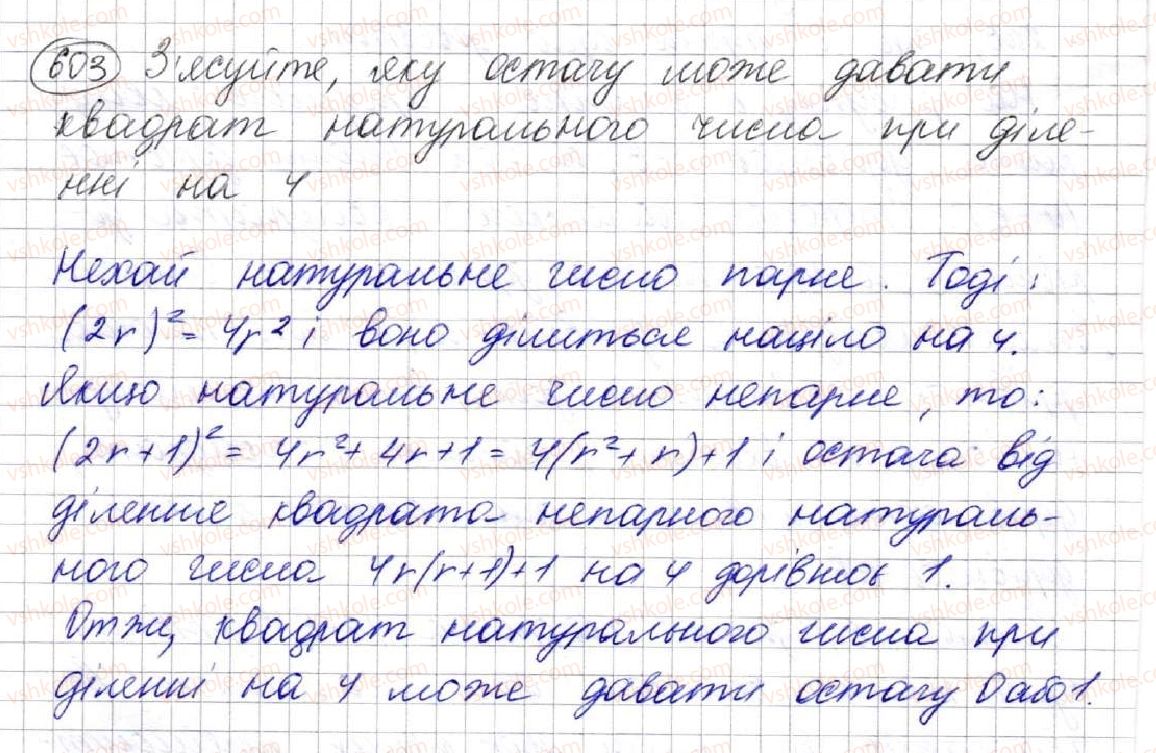 603 З'ясуйте, яку остачу може давати
квадрат натурального числа при діле-
нні на 4
Нехай натуральне число парне. Тоді:
(2r)² = 4r² і воно ділиться націло на 4.
Якщо натуральне число непарне, то:
(2r+1)² = 4r²+4r+1 = 4(r²+r)+1 і остача від
ділення квадрата непарного натураль-
ного числа 4r(r+1)+1 на 4 дорівнює 1.
Отже, квадрат натурального числа при
діленні на 4 може давати остачу 0 або 1.